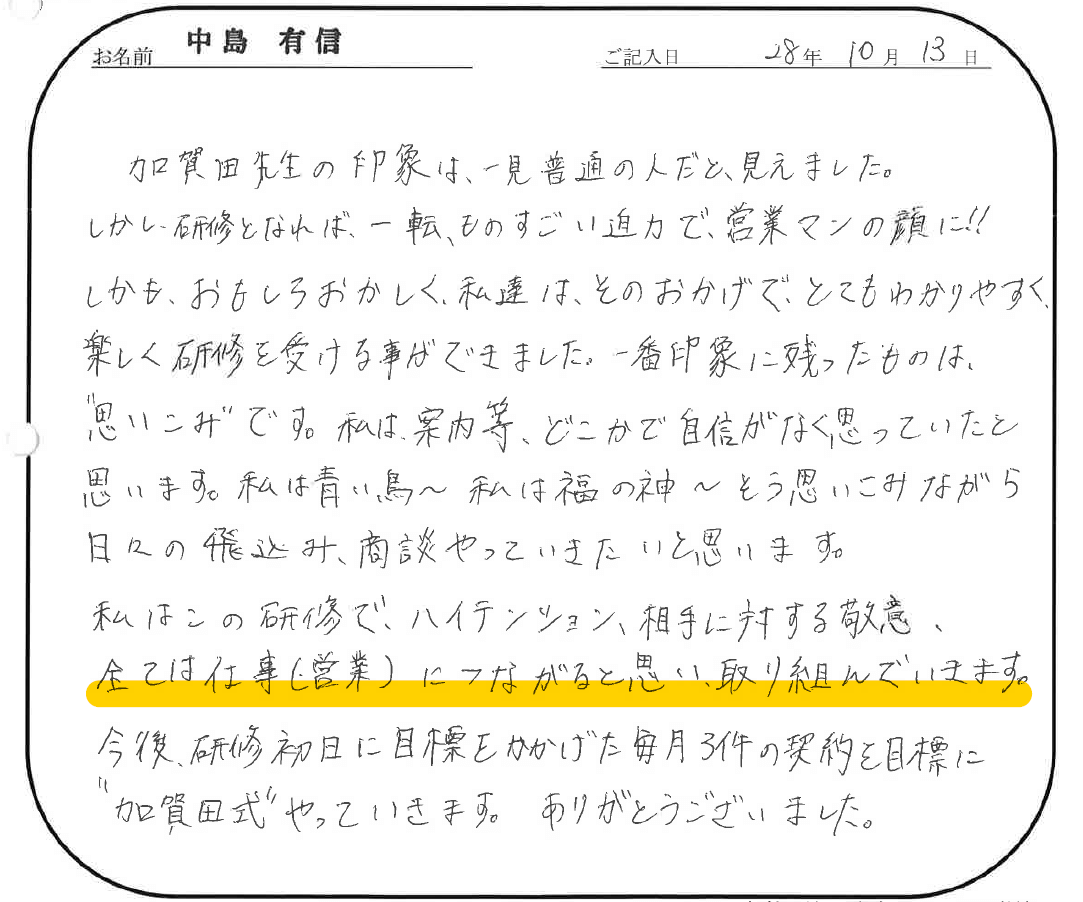 お名前 中島 有信 ご記入日 28年 10月 13日
加賀田先生の印象は、一見普通の人だと、見えました。
しかし研修となれば、一転、ものすごい迫力で、営業マンの顔に!!
しかも、おもしろおかしく、私達は、そのおかげで、とてもわかりやすく、
楽しく研修を受ける事ができました。一番印象に残ったものは、
"思いこみ"です。私は、案内等、どこかで自信がなく思っていたと
思います。私は青い鳥〜 私は福の神〜そう思いこみながら
日々の飛込み、商談やっていきたいと思います。
私はこの研修で、ハイテンション、相手に対する敬意、
全ては仕事(営業)につながると思い、取り組んでいきます。
今後、研修初日に目標をかかげた毎月3件の契約を目標に
"加賀田式"やっていきます。 ありがとうございました。